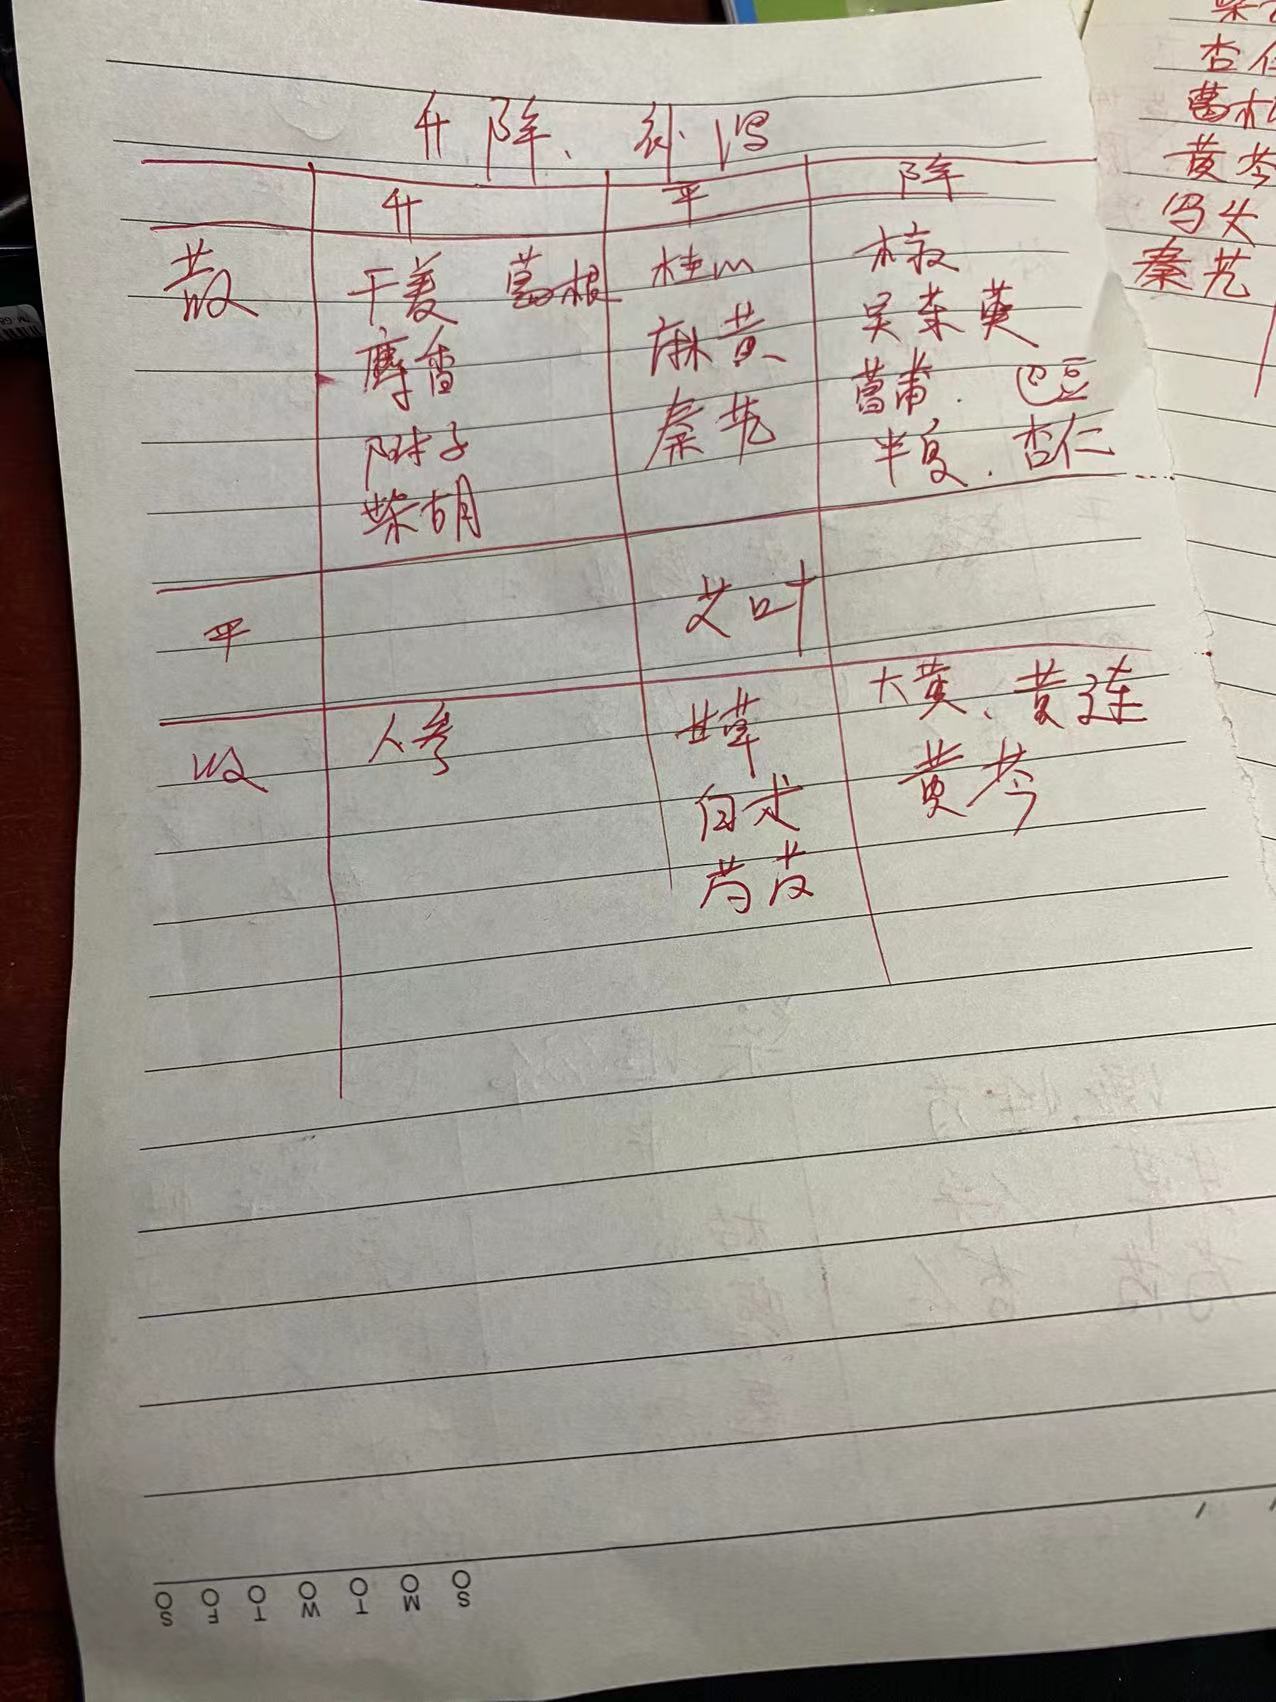 升降、补泻
升 平 降
散 干姜 葛根 桂皮 木菽
麝香 麻黄 吴茱萸
附子 秦艽 菖蒲. 巴豆
柴胡 半夏. 杏仁
平 艾叶
收 人参 甘草 大黄、黄连
白术 黄芩
芍药
杏仁
葛根
黄芩
乌头
秦艽
S M T W T F S